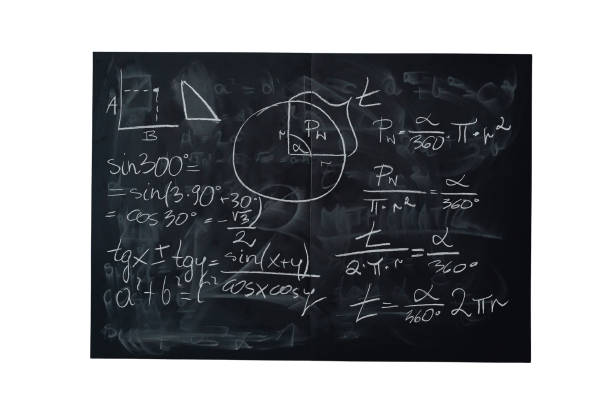 A
B
sin300°=
=sin(3·90°+30°
= cos30° = -√3/2
tgx ± tgy = sin(x+y)/cosxcosy
a²+b²=c²
t
P_N
r
α
r
P_N = α/360° · π·r²
P_N/π·r² = α/360°
t/2·π·r = α/360°
t = α/360° 2πr